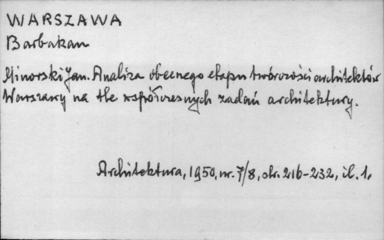 WARSZAWA
Barbakan
Minorski Jan. Analiza obecnego etapu twórczości architektów
Warszawy na tle współczesnych zadań architektury.
Architektura, 1950, nr. 7/8, str. 216-232, il. 1.